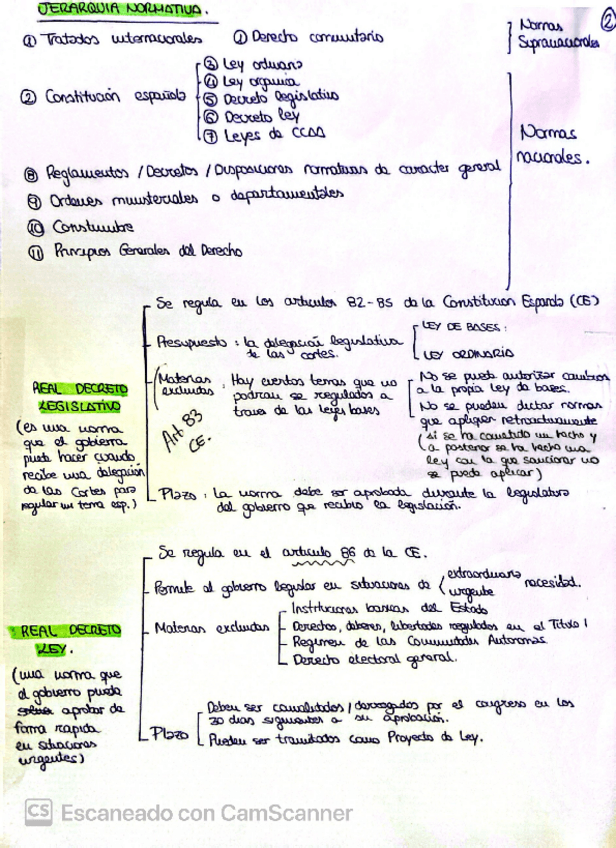 JERARQUIA NORMATIVA.
②
① Tratados internacionales ① Derecho comunitario
Normas
Supranacionales
② Constitución española
③ Ley ordinaria
④ Ley organica
⑤ Decreto legislativo
⑥ Decreto ley
⑦ Leyes de CCAA
Normas
nacionales.
⑧ Reglamentos / Decretos / Disposiciones normativas de caracter general
⑨ Ordenes ministeriales o departamentales
⑩ Constumbre
⑪ Principios Generales del Derecho
REAL DECRETO
LEGISLATIVO
(es una norma
que el gobierno
puede hacer cuando
recibe una delegación
de las Cortes para
regular un tema esp.)
Se regula en los artículos 82-85 de la Constitución Española (CE)
Presupuesto : la delegación legislativa
de las cortes.
LEY DE BASES :
LEY ORDINARIA
Materias
excluidas : Hay ciertos temas que no
podran ser regulados a
traves de las leyes bases
Art 83
CE.
No se puede autorizar cambios
a la propia ley de bases.
No se pueden dictar normas
que apliquen retroactivamente
(si se ha cometido un hecho y
a posteriori se ha hecho una
ley con la que sancionar no
se puede aplicar)
Plazo : la norma debe ser aprobada durante la legislatura
del gobierno que recibio la legislación.
REAL DECRETO
LEY.
(una norma que
el gobierno puede
aprobar de
forma rapida
en situaciones
urgentes)
Se regula en el artículo 86 de la CE.
Permite al gobierno legislar en situaciones de
extraordinaria
urgente
necesidad.
Materias excluidas
Instituciones basicas del Estado
Derechos, deberes, libertades regulados en el Titulo I
Regimen de las Comunidades Autonomas
Derecho electoral general.
Plazo
Deben ser convalidados / derogados por el congreso en los
30 dias siguientes a su aprobación.
Pueden ser tramitados como Proyecto de Ley.
CS Escaneado con CamScanner